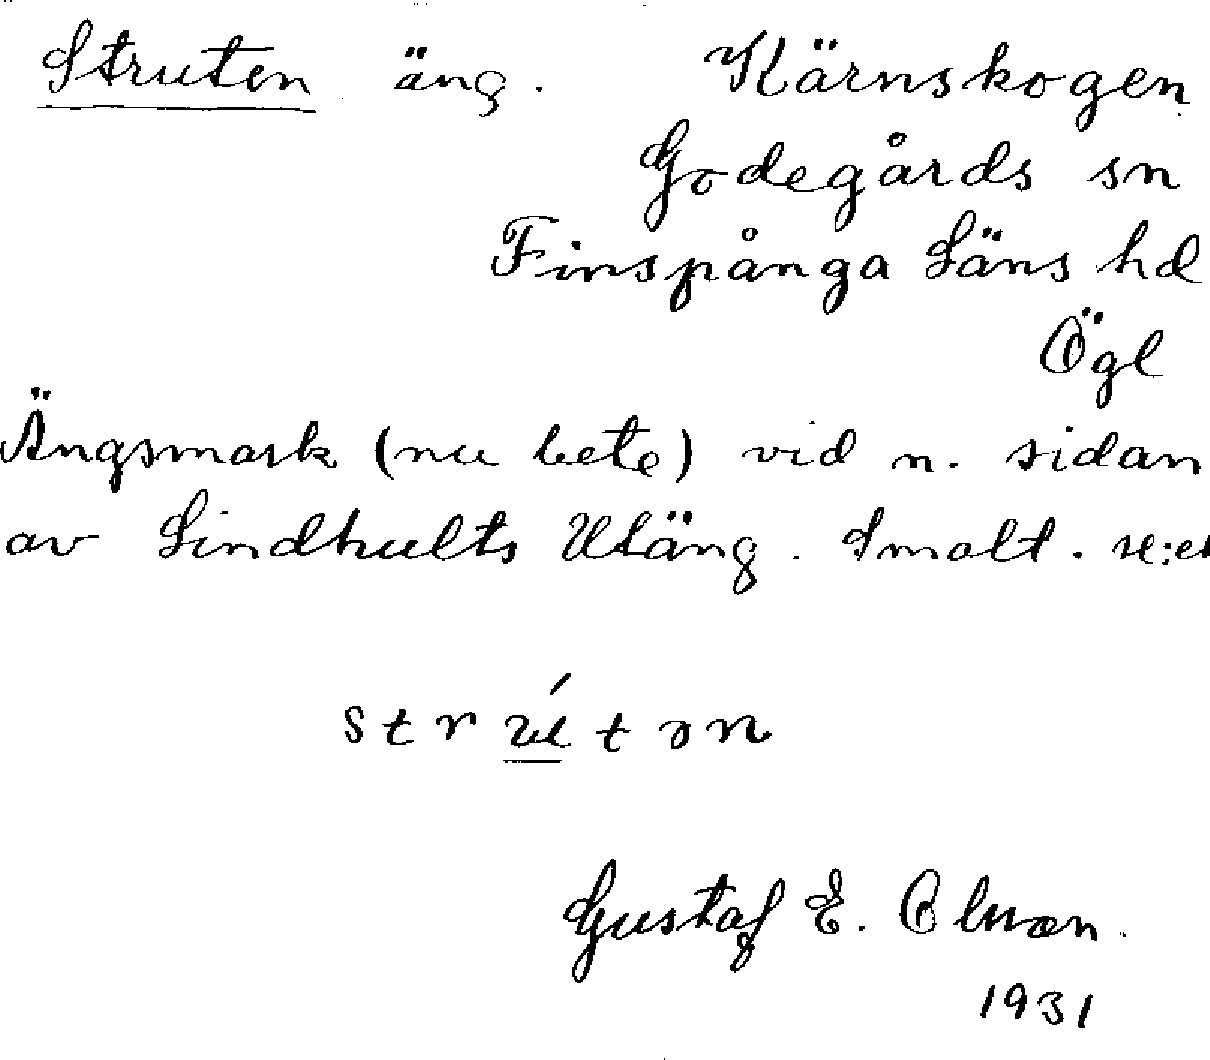 Struten äng. Kärnskogen
Godegårds sn
Finspånga Läns hd
Ögl
Ängsmark (nu bete) vid n. sidan
av Lindhults Utäng. Smalt.
Gustaf E. Olsson.
1931